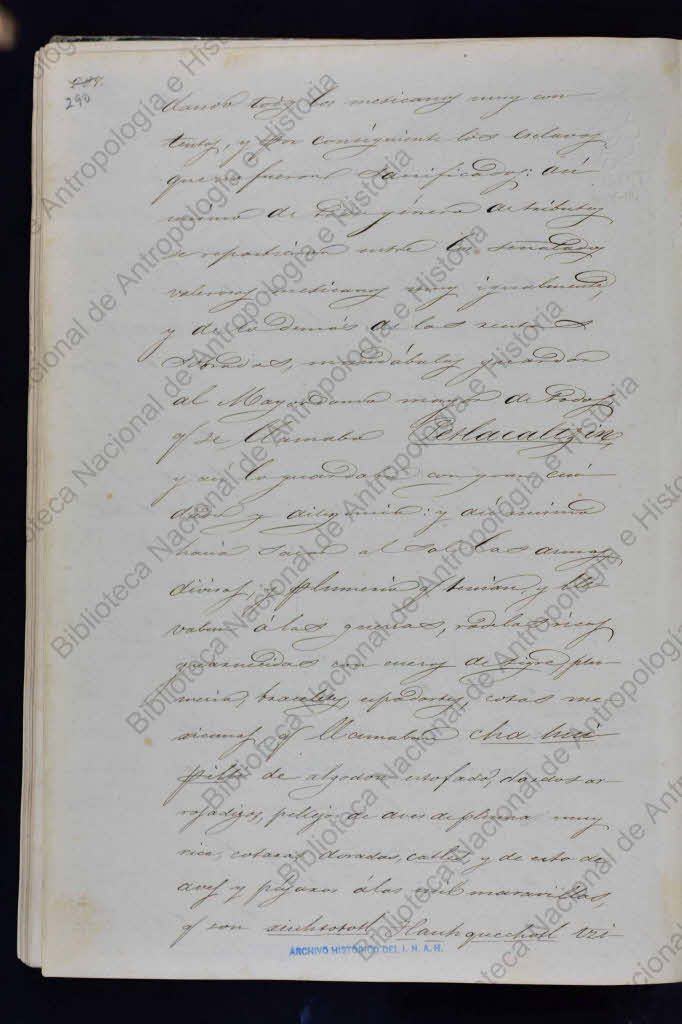 290
dando todos los mexicanos muy con
tentos, y por consiguiente los esclavos
que no fueron sanificados: así
mismo de este género de tributos
se repartieron entre los senalados
valerosos mexicanos muy igualmente,
y de lo demás de las rentas
sobradas, mandábales guardar
al Mayordomo mayor de todos,
q̃ se llamaba Petlacalcatzin,
y así lo guardaba con gran cui
dado y diligencia: y asimismo
hacia sacar al sol las armas,
divisas, y plumeria q̃ tenian, y lle
vaban á las guerras, rodelas ricas
guarnecidas con cueros de tigre, plu-
meria, braceletes, espadartes, cotas me
xicanas q̃ llamaban
pilli de algodon estofado, dardos ar-
rojadizos, pellejo de aves de pluma muy
rica, cotaras doradas, y de esto de
aves y pájaros á las mil maravillas,
q̃ son xiuhtototl tlauhquechotl tzi
ARCHIVO HISTÓRICO DEL I. N. A. H.
Biblioteca Nacional de Antropología e Historia